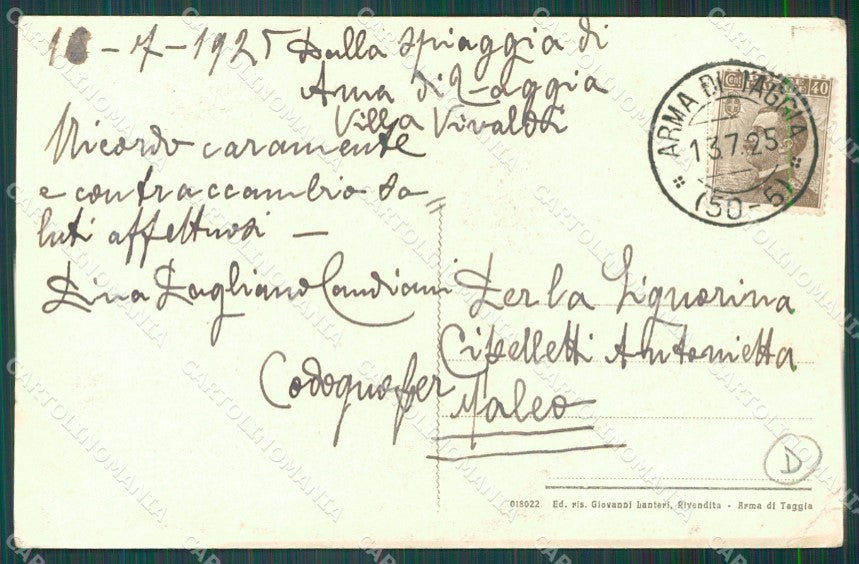 -7-1925 Dalla spiaggia di
Arma di Taggia
Villa Vivaldi
Ricordo caramente
e contraccambio sa=
luti affettuosi —
Dina Dagliano Candiani
Per la Signorina
Cipelletti Antonietta
Codogno per
Maleo
ARMA DI TAGGIA
13.7.25
(50-6)
40
D
018022 Ed. ris. Giovanni Lanteri, Rivendita - Arma di Taggia
CARTOLINOMANIA